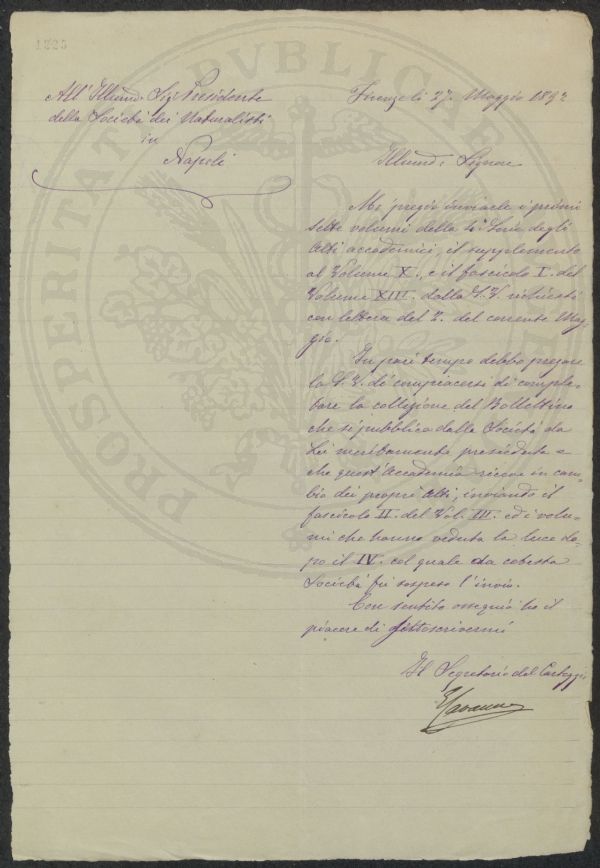 1325
All'Illmo. Sig. Presidente
della Società dei Naturalisti
in
Napoli
Firenze li 27. Maggio 1892
Illmo: Signore
Mi pregio inviarle i primi
sette volumi della Serie degli
Atti accademici, il supplemento
al Volume X., e il fascicolo I. del
Volume XIII. dalla S. V. richiesti
con lettera del 2. del corrente Mag=
gio.
In pari tempo debbo pregare
la S. V. di compiacersi di comple=
tare la collezione del Bollettino
che si pubblica dalla Società da
Lei meritamente presieduta e
che quest'Accademia riceve in cam=
bio dei propri Atti, inviando il
fascicolo II. del Vol. III. ed i volu=
mi che hanno veduta la luce do=
po il IV. col quale da codesta
Società fu sospeso l'invio.
Con sentito ossequio ho il
piacere di sottoscrivermi
Il Segretario del Carteggio
PROSPERITATI PVBLICAE